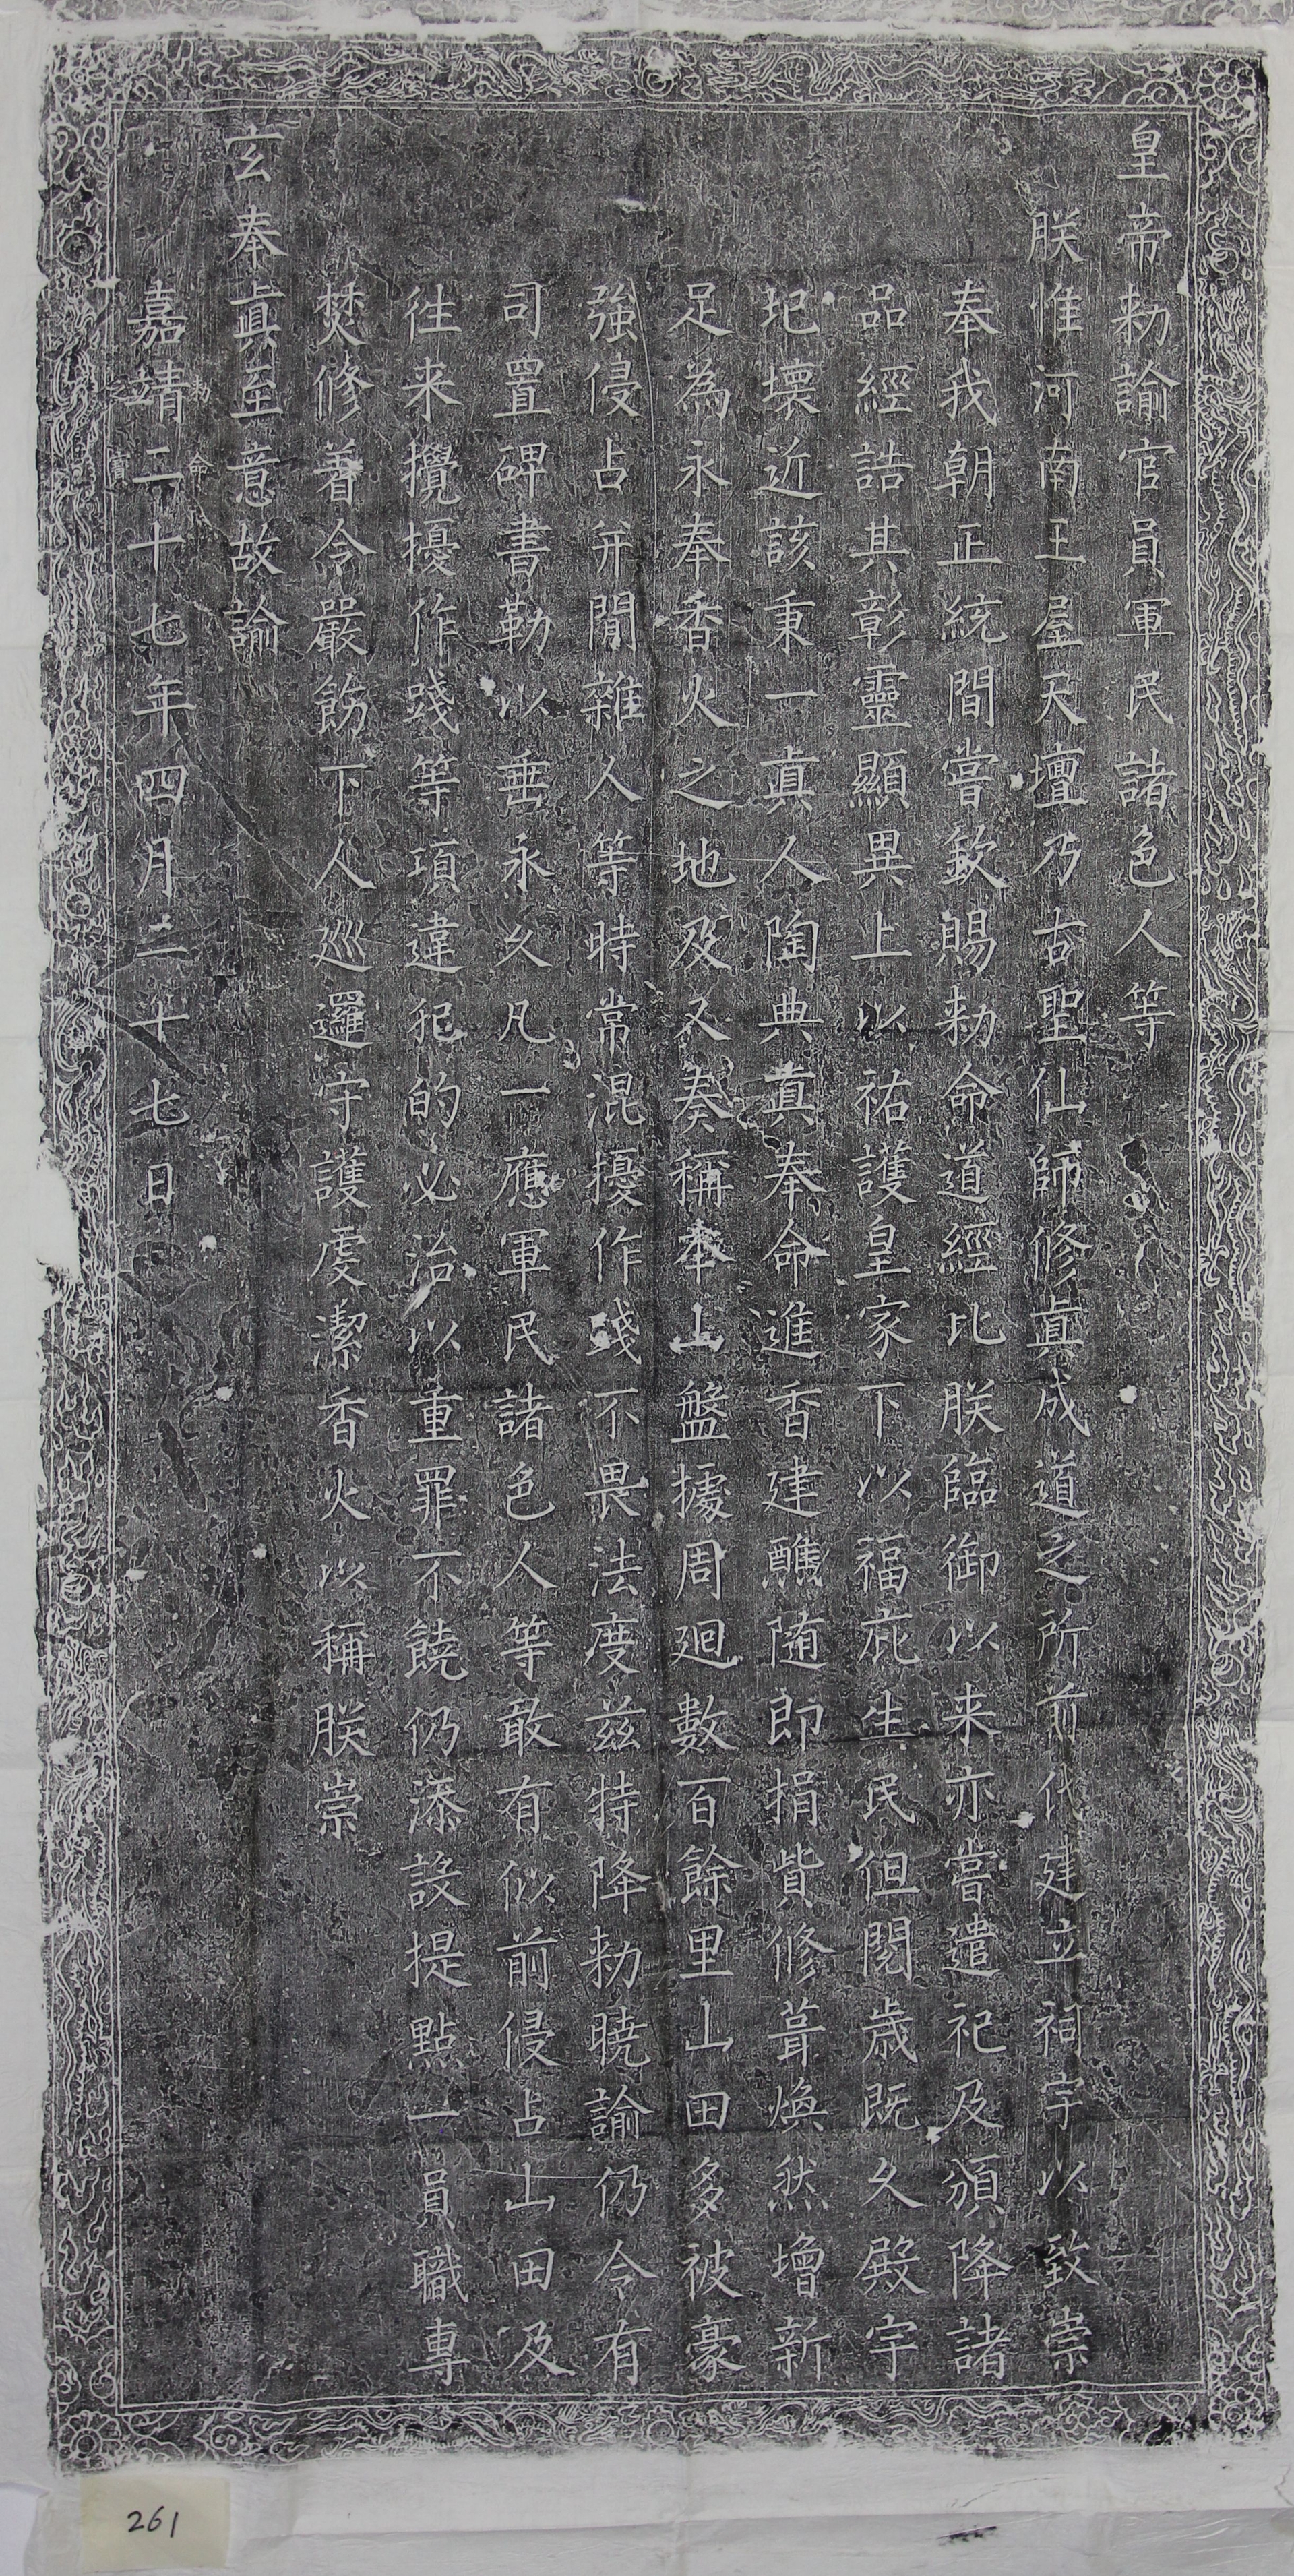 皇帝勑諭官員軍民諸色人等
朕惟河南王屋天壇乃古聖仙師修眞成道之所前代建立祠宇以致崇
奉我朝正統間嘗欽賜勑命道經比朕臨御以来亦嘗遣祀及頒降諸
品經誥其彰靈顯異上以祐護皇家下以福庇生民但閱歲既久殿宇
圮壞近該秉一真人陶典真奉命進香建醮随即捐貲修葺煥然增新
足為永奉香火之地及又奏稱本山盤據周廻數百餘里山田多被豪
強侵占并閒雜人等時常混擾作踐不畏法度兹特降勑曉諭仍令有
司置碑書勒以垂永久凡一應軍民諸色人等敢有似前侵占山田及
徃来攪擾作踐等項違犯的必治以重罪不饒仍添設提點一員職專
焚修着令嚴飭下人巡邏守護虔潔香火以稱朕崇
玄奉眞至意故諭
嘉靖二十七年四月二十七日
勑命之寶
261